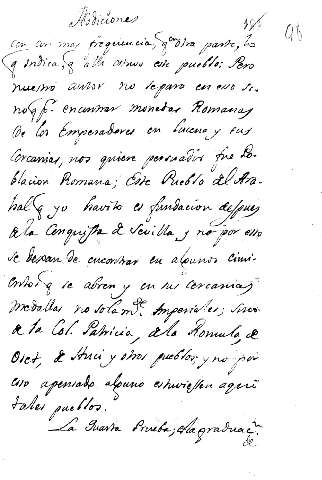 Addiciones
98
con con mas frequencia, q.e otra parte, lo
q indica, q alli estuvo este pueblo; Pero
nuestro autor no se paro en eso si-
no q p.r encontrar monedas Romanas
de los Emperadores en Lucena y sus
cercanias, nos quiere persuadir fue Po-
blacion Romana; Este Pueblo del Ara-
hal q yo havito es fundacion despues
de la Conquista de Sevilla, y no por esso
se dexan de encontrar en algunos cimi-
entos q se abren y en sus cercanias
medallas no solam.te Imperiales; sino
de la Col. Patricia, de la Romula, de
Oset, de Ituci y otros pueblos, y no por
eso a pensado alguno estuviesen aqui
tales pueblos.
La quarta Prueba, es la graduac.n
de